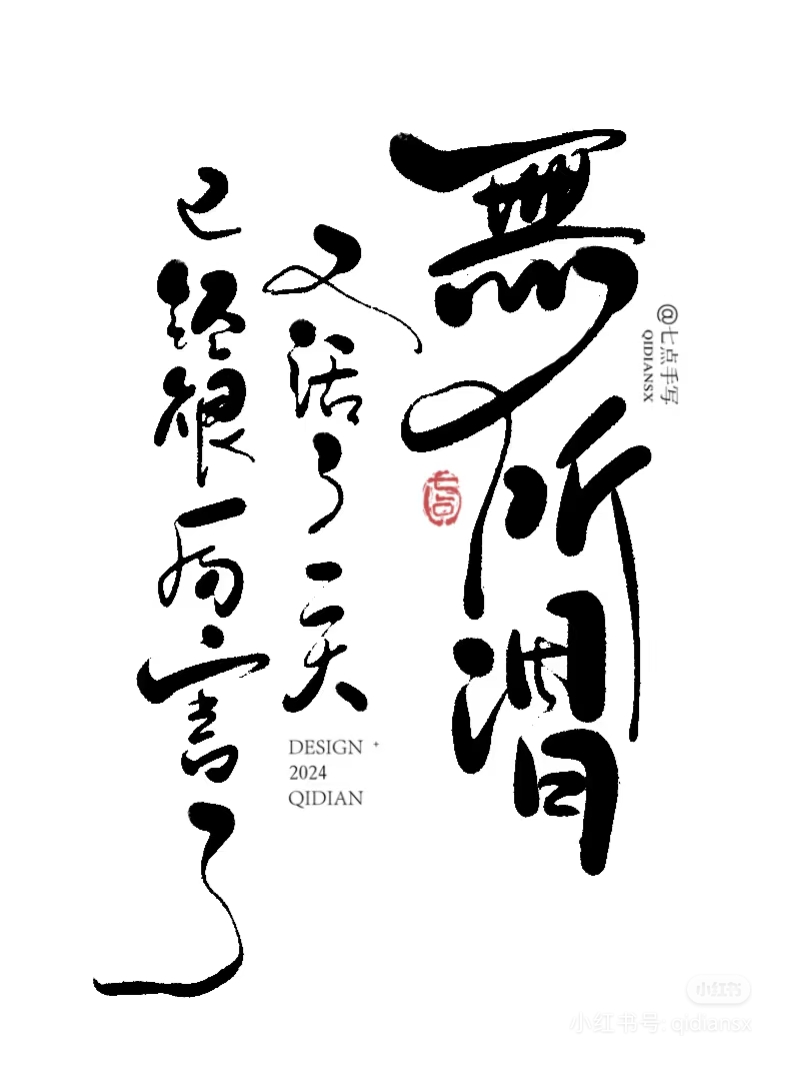 @七点手写
QIDIANSX
無所謂
七点
又活了一天
已经很厉害了
DESIGN +
2024
QIDIAN
小红书
小红书号: qidiansx